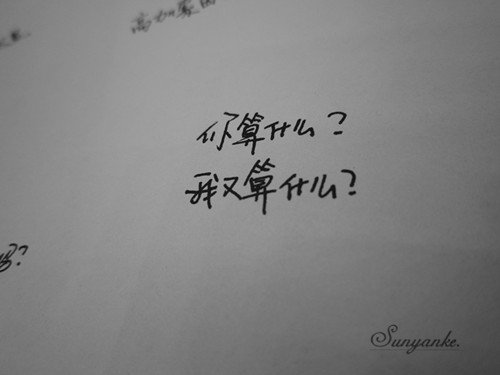 你算什么？
我又算什么？
Sunyanke.